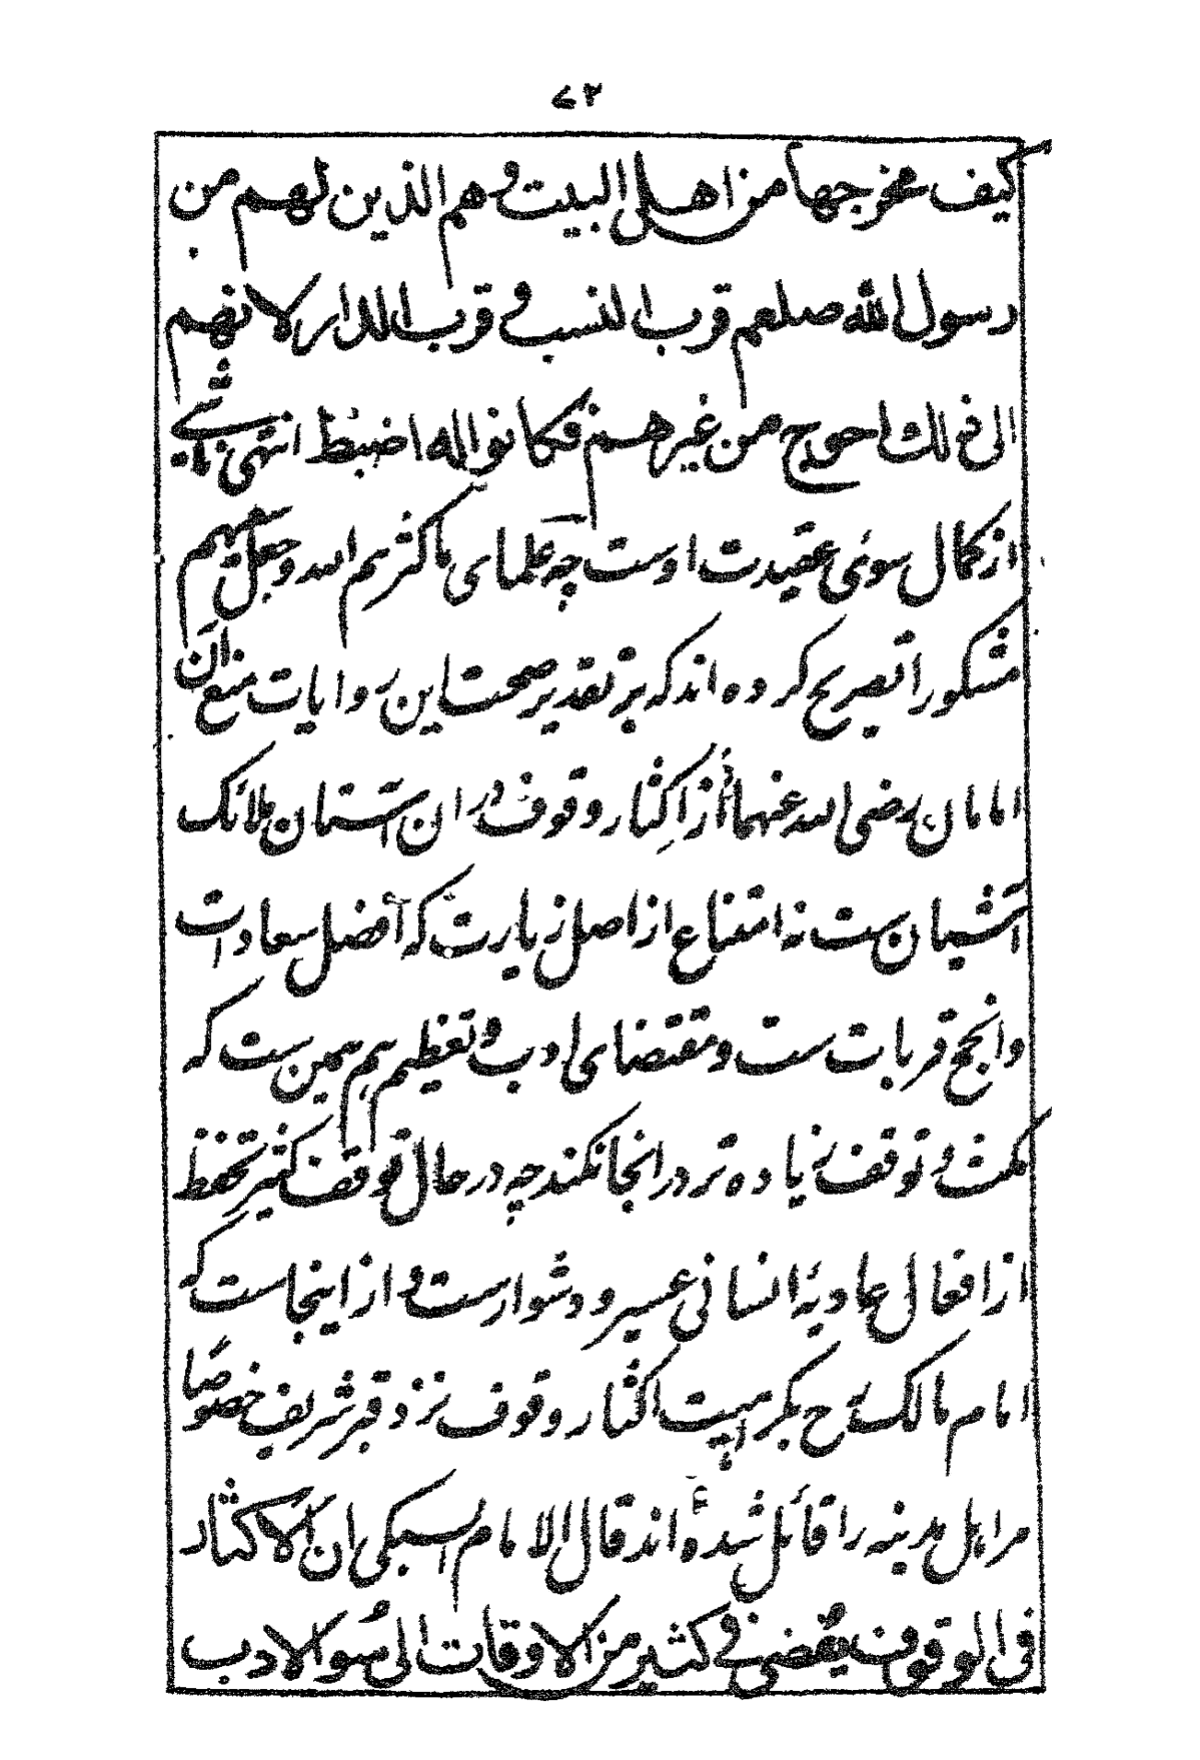 ۷۲
كيف مخرجها من اهل البيت وهم الذين لهم من
رسول الله صلعم قرب النسب وقرب الدار لانهم
الى ذلك احوج من غيرهم فكانوا له اضبط انتهى ناشى
از كمال سوئ عقيدت اوست چه علماى ما كثرهم الله وجعل سعيهم
مشكورا تصريح كرده اند كه بر تقدير صحت اين روايات منع آن
امامان رضى الله عنهما از اكثار وقوف در ان آستان ملائك
آشيان ست نه امتناع از اصل زيارت كه افضل سعادات
وانجح قربات ست ومقتضاى ادب وتعظيم هم همين ست كه
مكث وتوقف زياده تر در انجا نكنند چه در حال توقف كثير تحفظ
از افعال عاديۀ انسانى عسير ودشوارست واز اينجاست كه
امام مالك رح بكراهيت اكثار وقوف نزد قبر شريف خصوصًا
مر اهل مدينه را قائل شده اند قال الامام السبكى ان الاكثار
فى الوقوف يفضى فى كثير من الاوقات الى سوء الادب